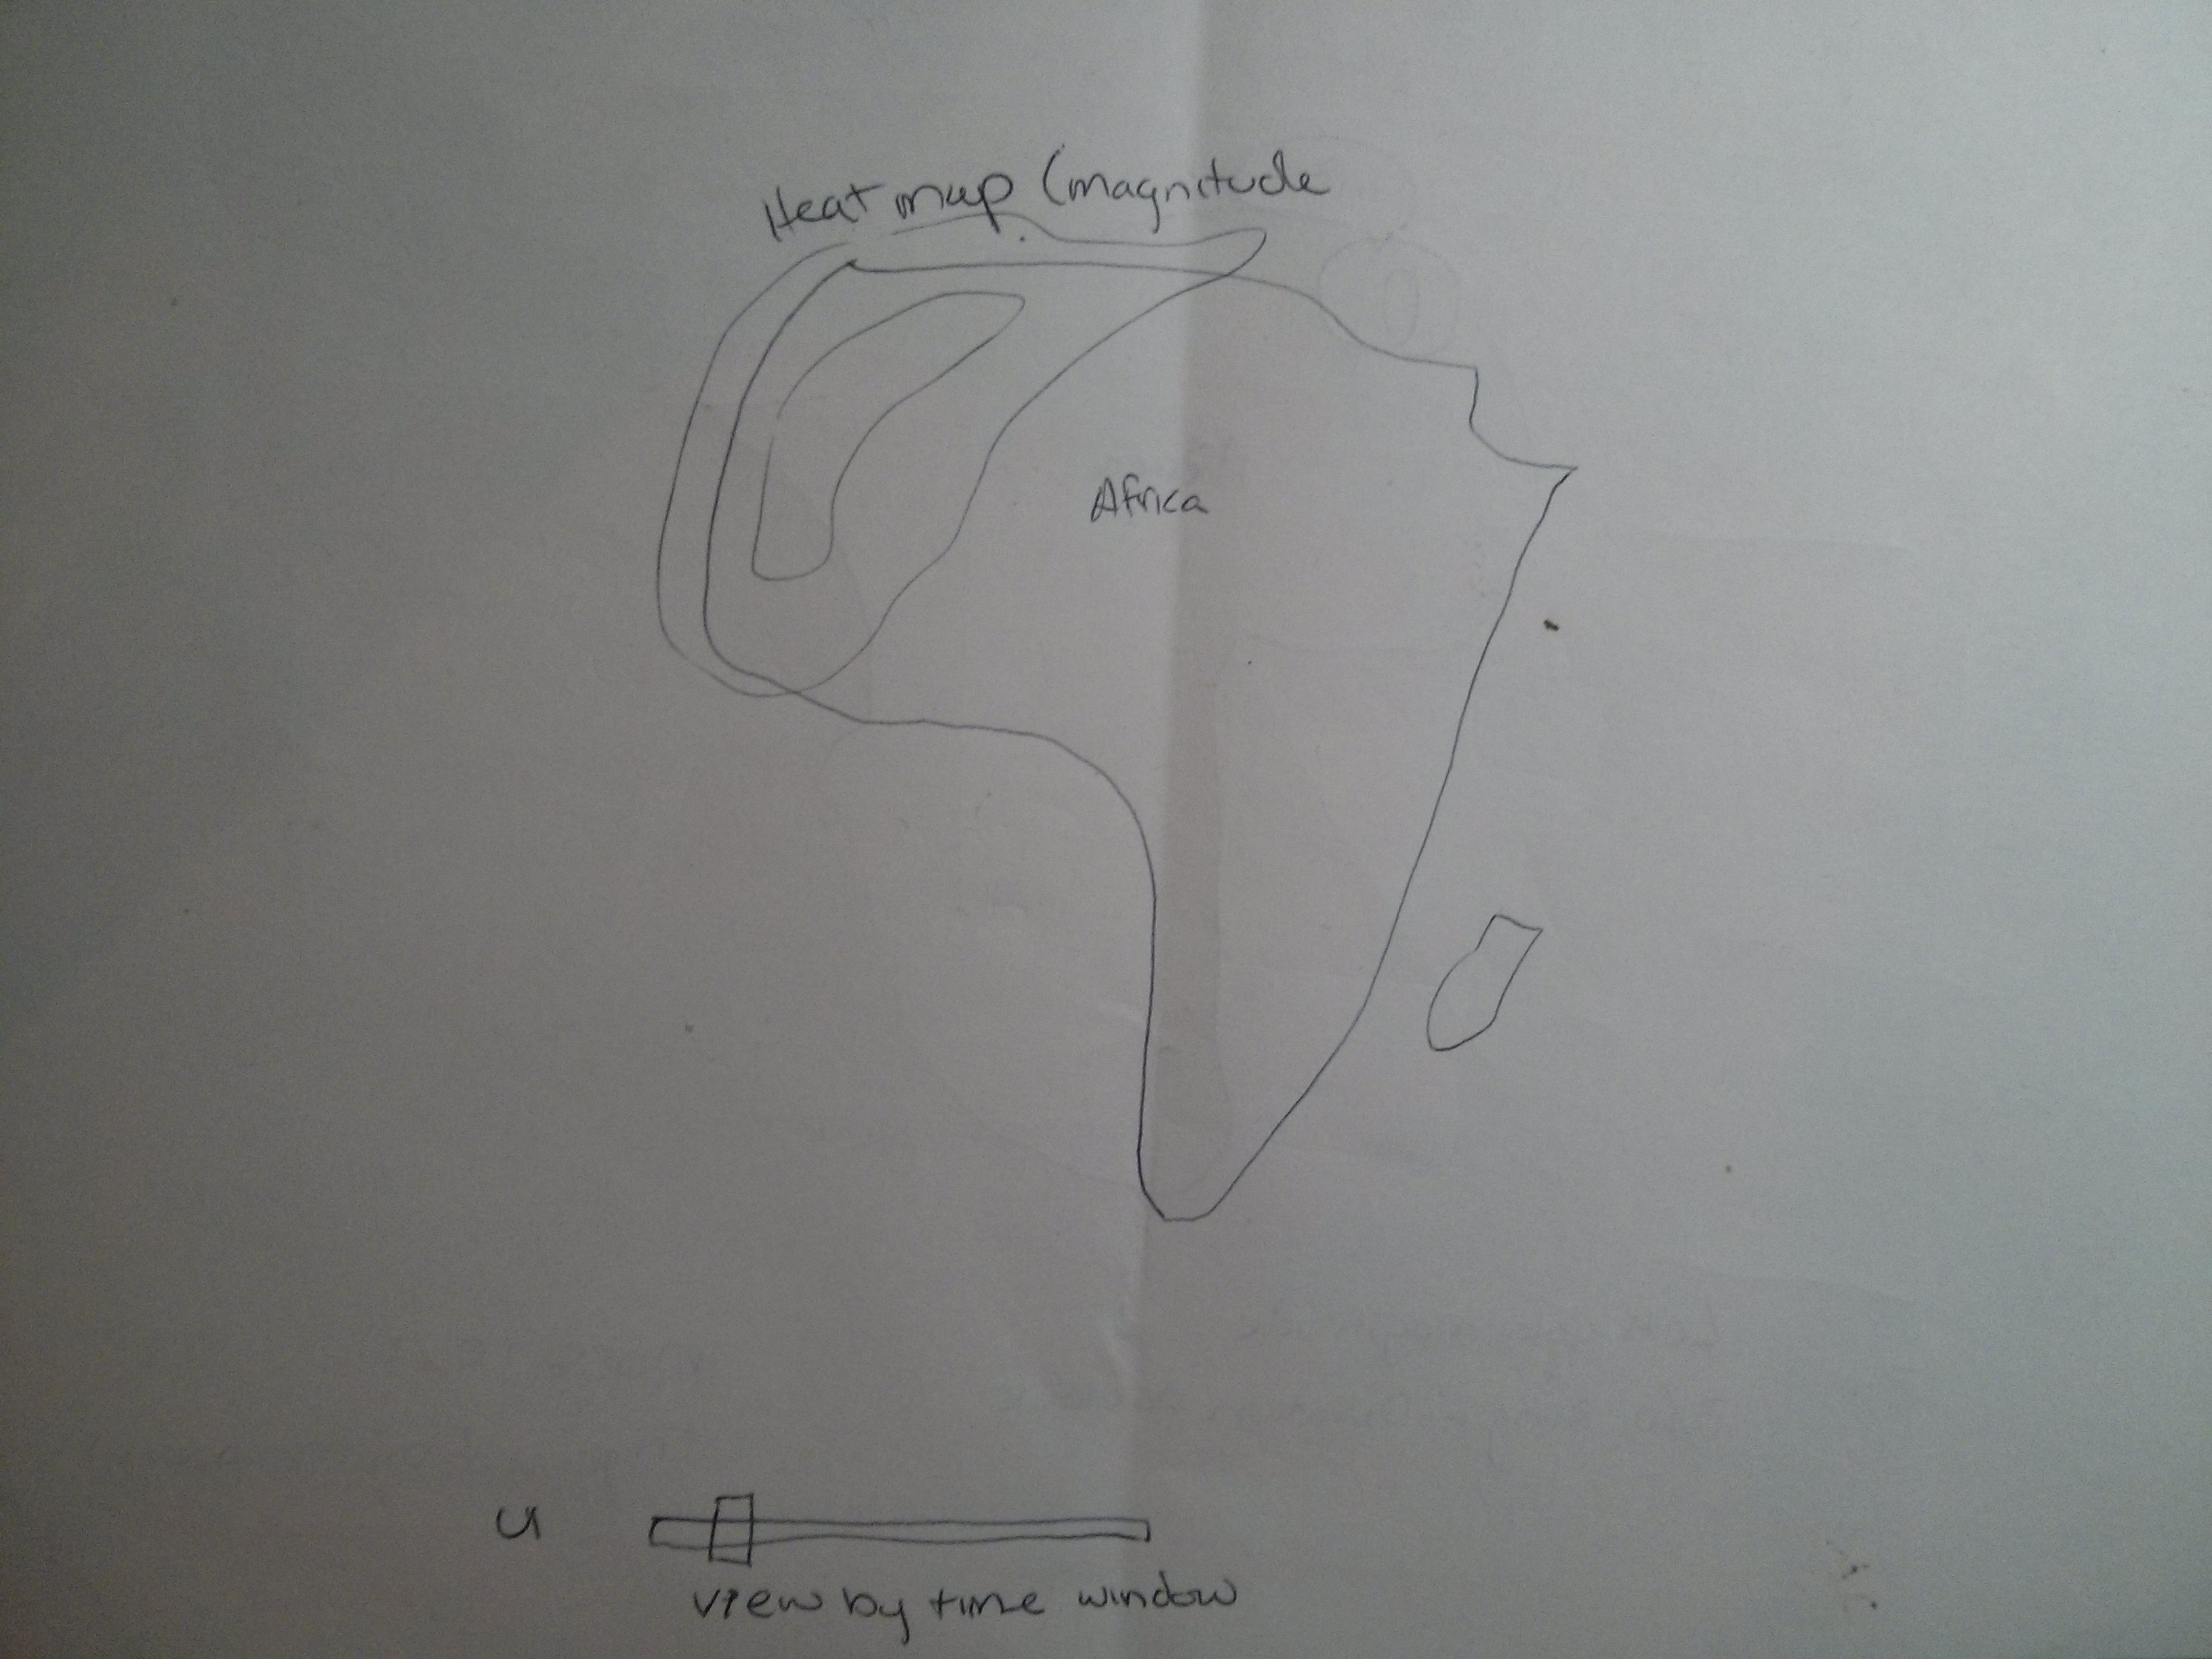 Heat map (magnitude
Africa
view by time window